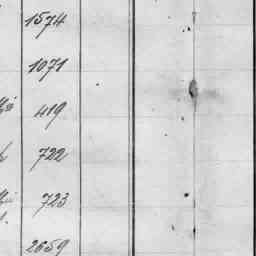 1574
1071
419
722
723
2659